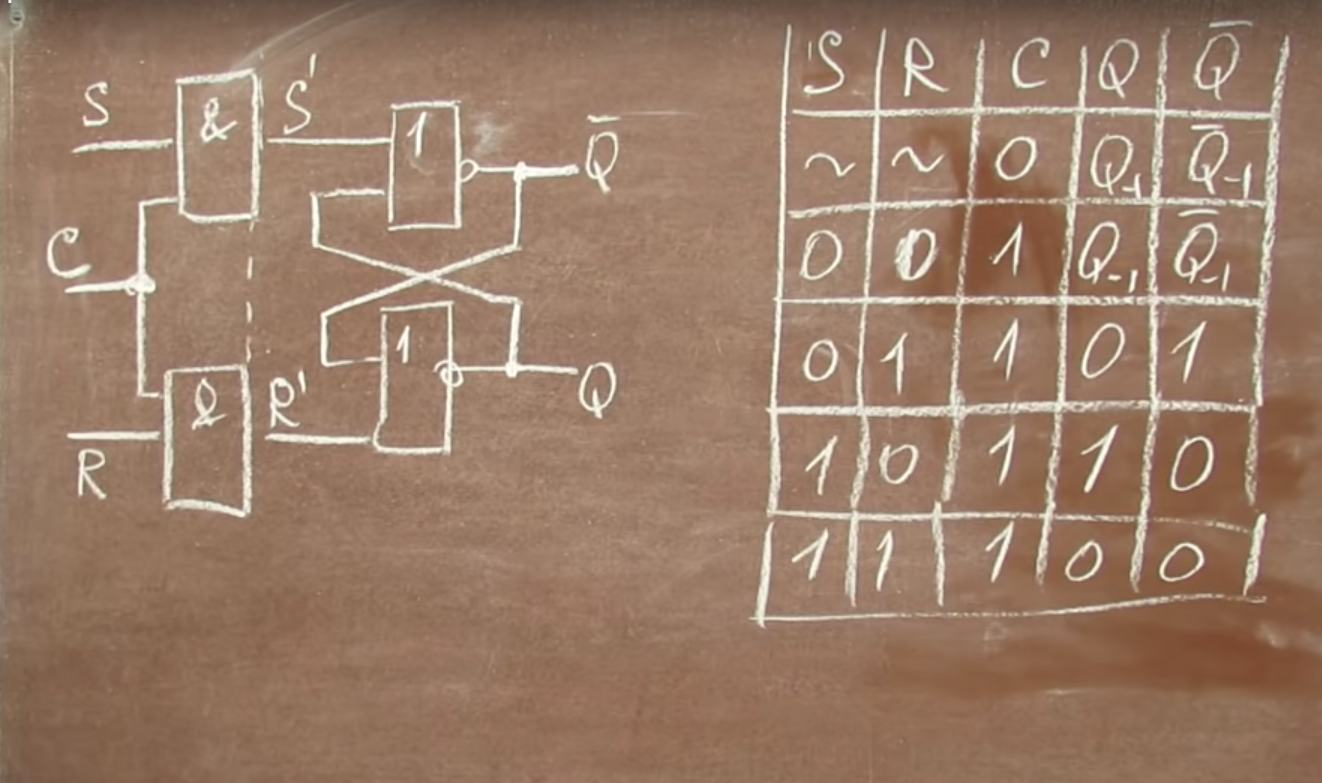 S & S' 1 Q̄
C
R & R' 1 Q
S R C Q Q̄
~ ~ 0 Q₋₁ Q̄₋₁
0 0 1 Q₋₁ Q̄₋₁
0 1 1 0 1
1 0 1 1 0
1 1 1 0 0